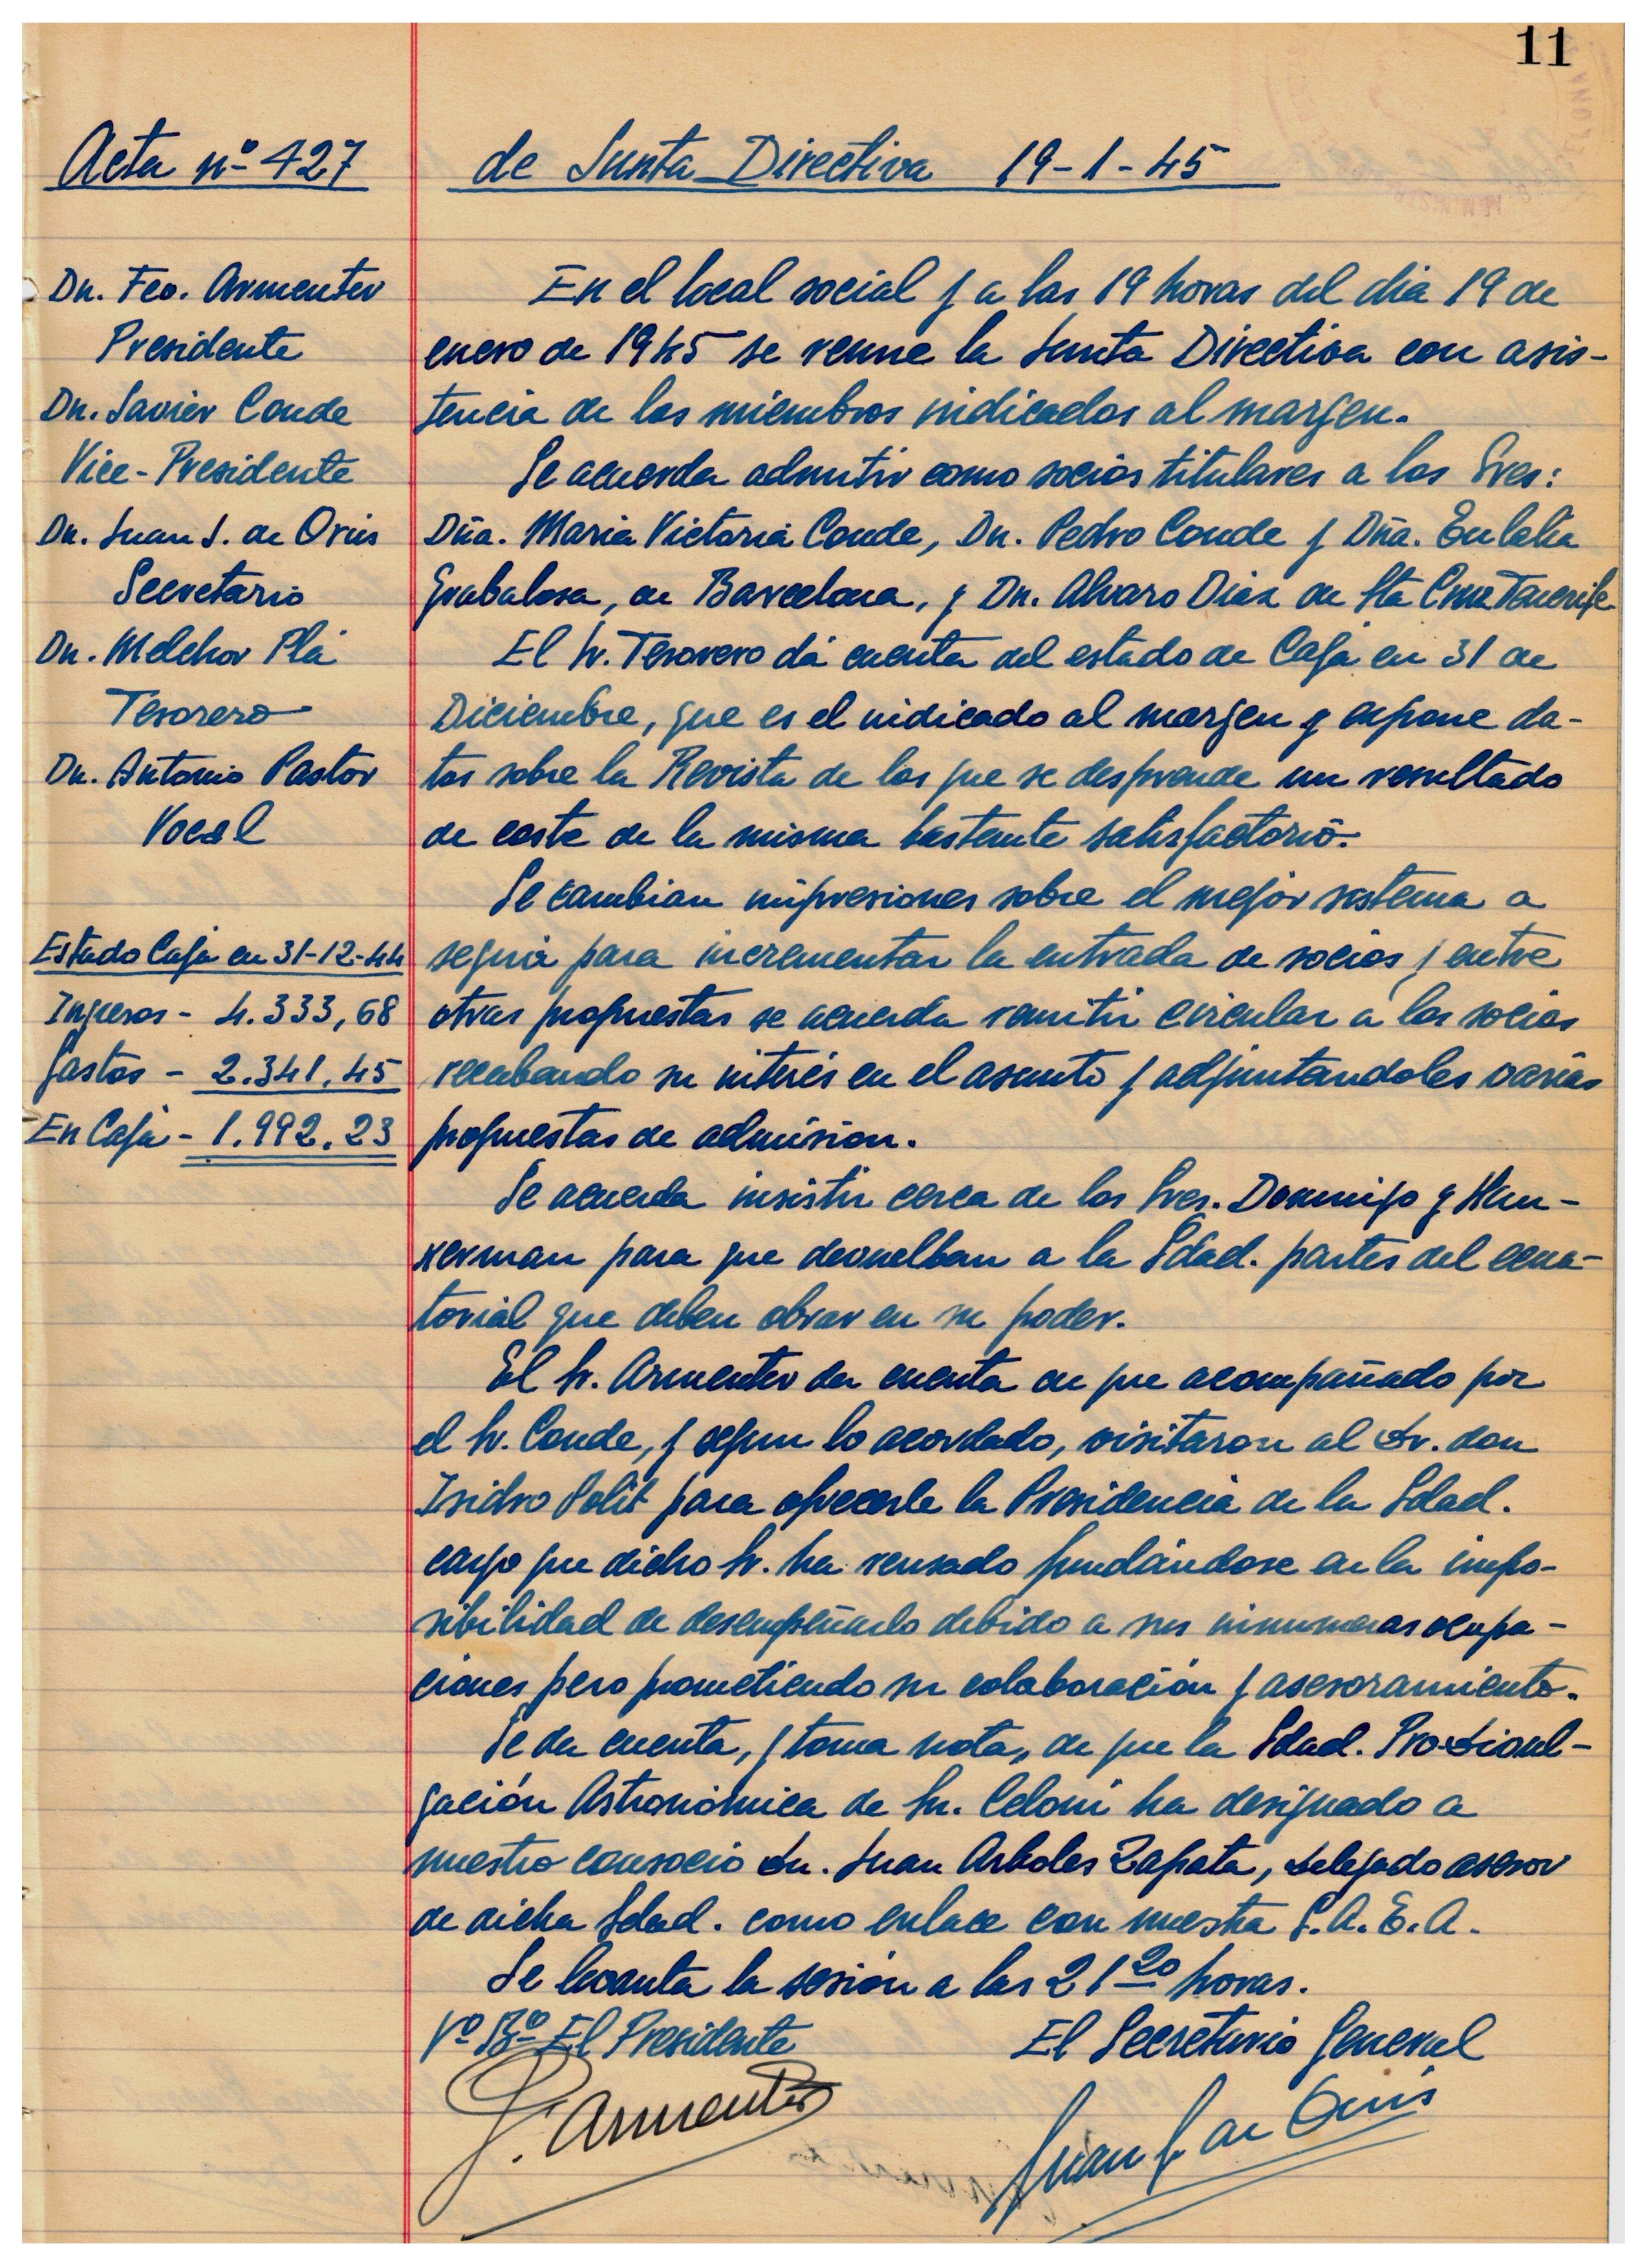 11
Acta nº 427
de Junta Directiva 19-1-45
Dn. Fco. Armenter
Presidente
Dn. Javier Conde
Vice-Presidente
Dn. Juan J. de Orus
Secretario
Dn. Melchor Plá
Tesorero
Dn. Antonio Pastor
Vocal
Estado Caja en 31-12-44
Ingresos - 4.333,68
Gastos - 2.341,45
En Caja - 1.992,23
En el local social y a las 19 horas del dia 19 de
enero de 1945 se reune la Junta Directiva con asis-
tencia de los miembros indicados al margen.
Se acuerda admitir como socios titulares a los Sres:
Dña. Maria Victoria Conde, Dn. Pedro Conde y Dña. Eulalia
Grabalosa, de Barcelona, y Dn. Alvaro Diaz de Sta Cruz Tenerife
El Sr. Tesorero dá cuenta del estado de Caja en 31 de
Diciembre, que es el indicado al margen y expone da-
tos sobre la Revista de los que se desprende un resultado
de coste de la misma bastante satisfactorio.
Se cambian impresiones sobre el mejor sistema a
seguir para incrementar la entrada de socios y entre
otras propuestas se acuerda remitir circular a los socios
recabando su interés en el asunto y adjuntandoles varias
propuestas de admision.
Se acuerda insistir cerca de los Sres. Domingo y
para que devuelban a la Sdad. partes del ecua-
torial que deben obrar en su poder.
El Sr. Armenter da cuenta de que acompañado por
el Sr. Conde, y segun lo acordado, visitaron al Dr. don
Isidro Polit para ofrecerle la Presidencia de la Sdad.
cargo que dicho Sr. ha reusado fundándose en la impo-
sibilidad de desempeñarlo debido a sus inumeras ocupa-
ciones pero prometiendo su colaboración y asesoramiento.
Se da cuenta, y toma nota, de que la Sdad. Pro-Divul-
gación Astronómica de Sn. Celoni ha designado a
nuestro consocio Dn. Juan Arboles Zapata, delegado asesor
de dicha Sdad. como enlace con nuestra S.A.E.A.
Se levanta la sesión a las 21 20 horas.
Vº Bº El Presidente
El Secretario General
F. Armenter
Juan J. de Orús